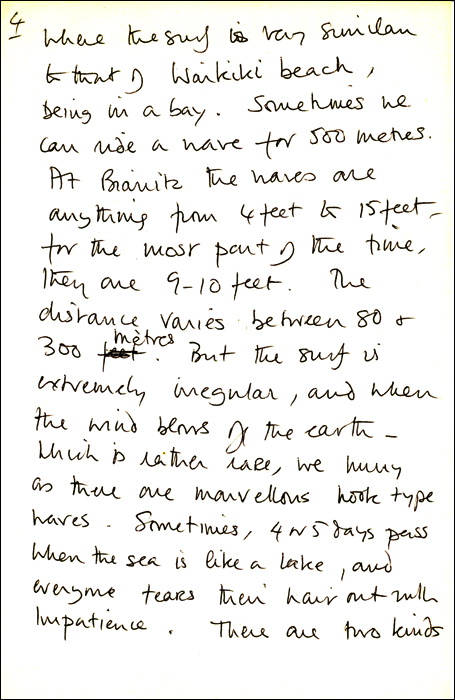 4
where the surf is very similar
to that of Waikiki beach,
being in a bay. Sometimes we
can ride a wave for 500 metres.
At Biarritz the waves are
anything from 4 feet to 15 feet –
for the most part of the time,
they are 9-10 feet. The
distance varies between 80 &
300 feet metres. But the surf is
extremely irregular, and when
the wind blows of the earth –
which is rather rare, we hurry
as there are marvellous hook type
waves. Sometimes, 4 or 5 days pass
when the sea is like a lake, and
everyone tears their hair out with
impatience. There are two kinds